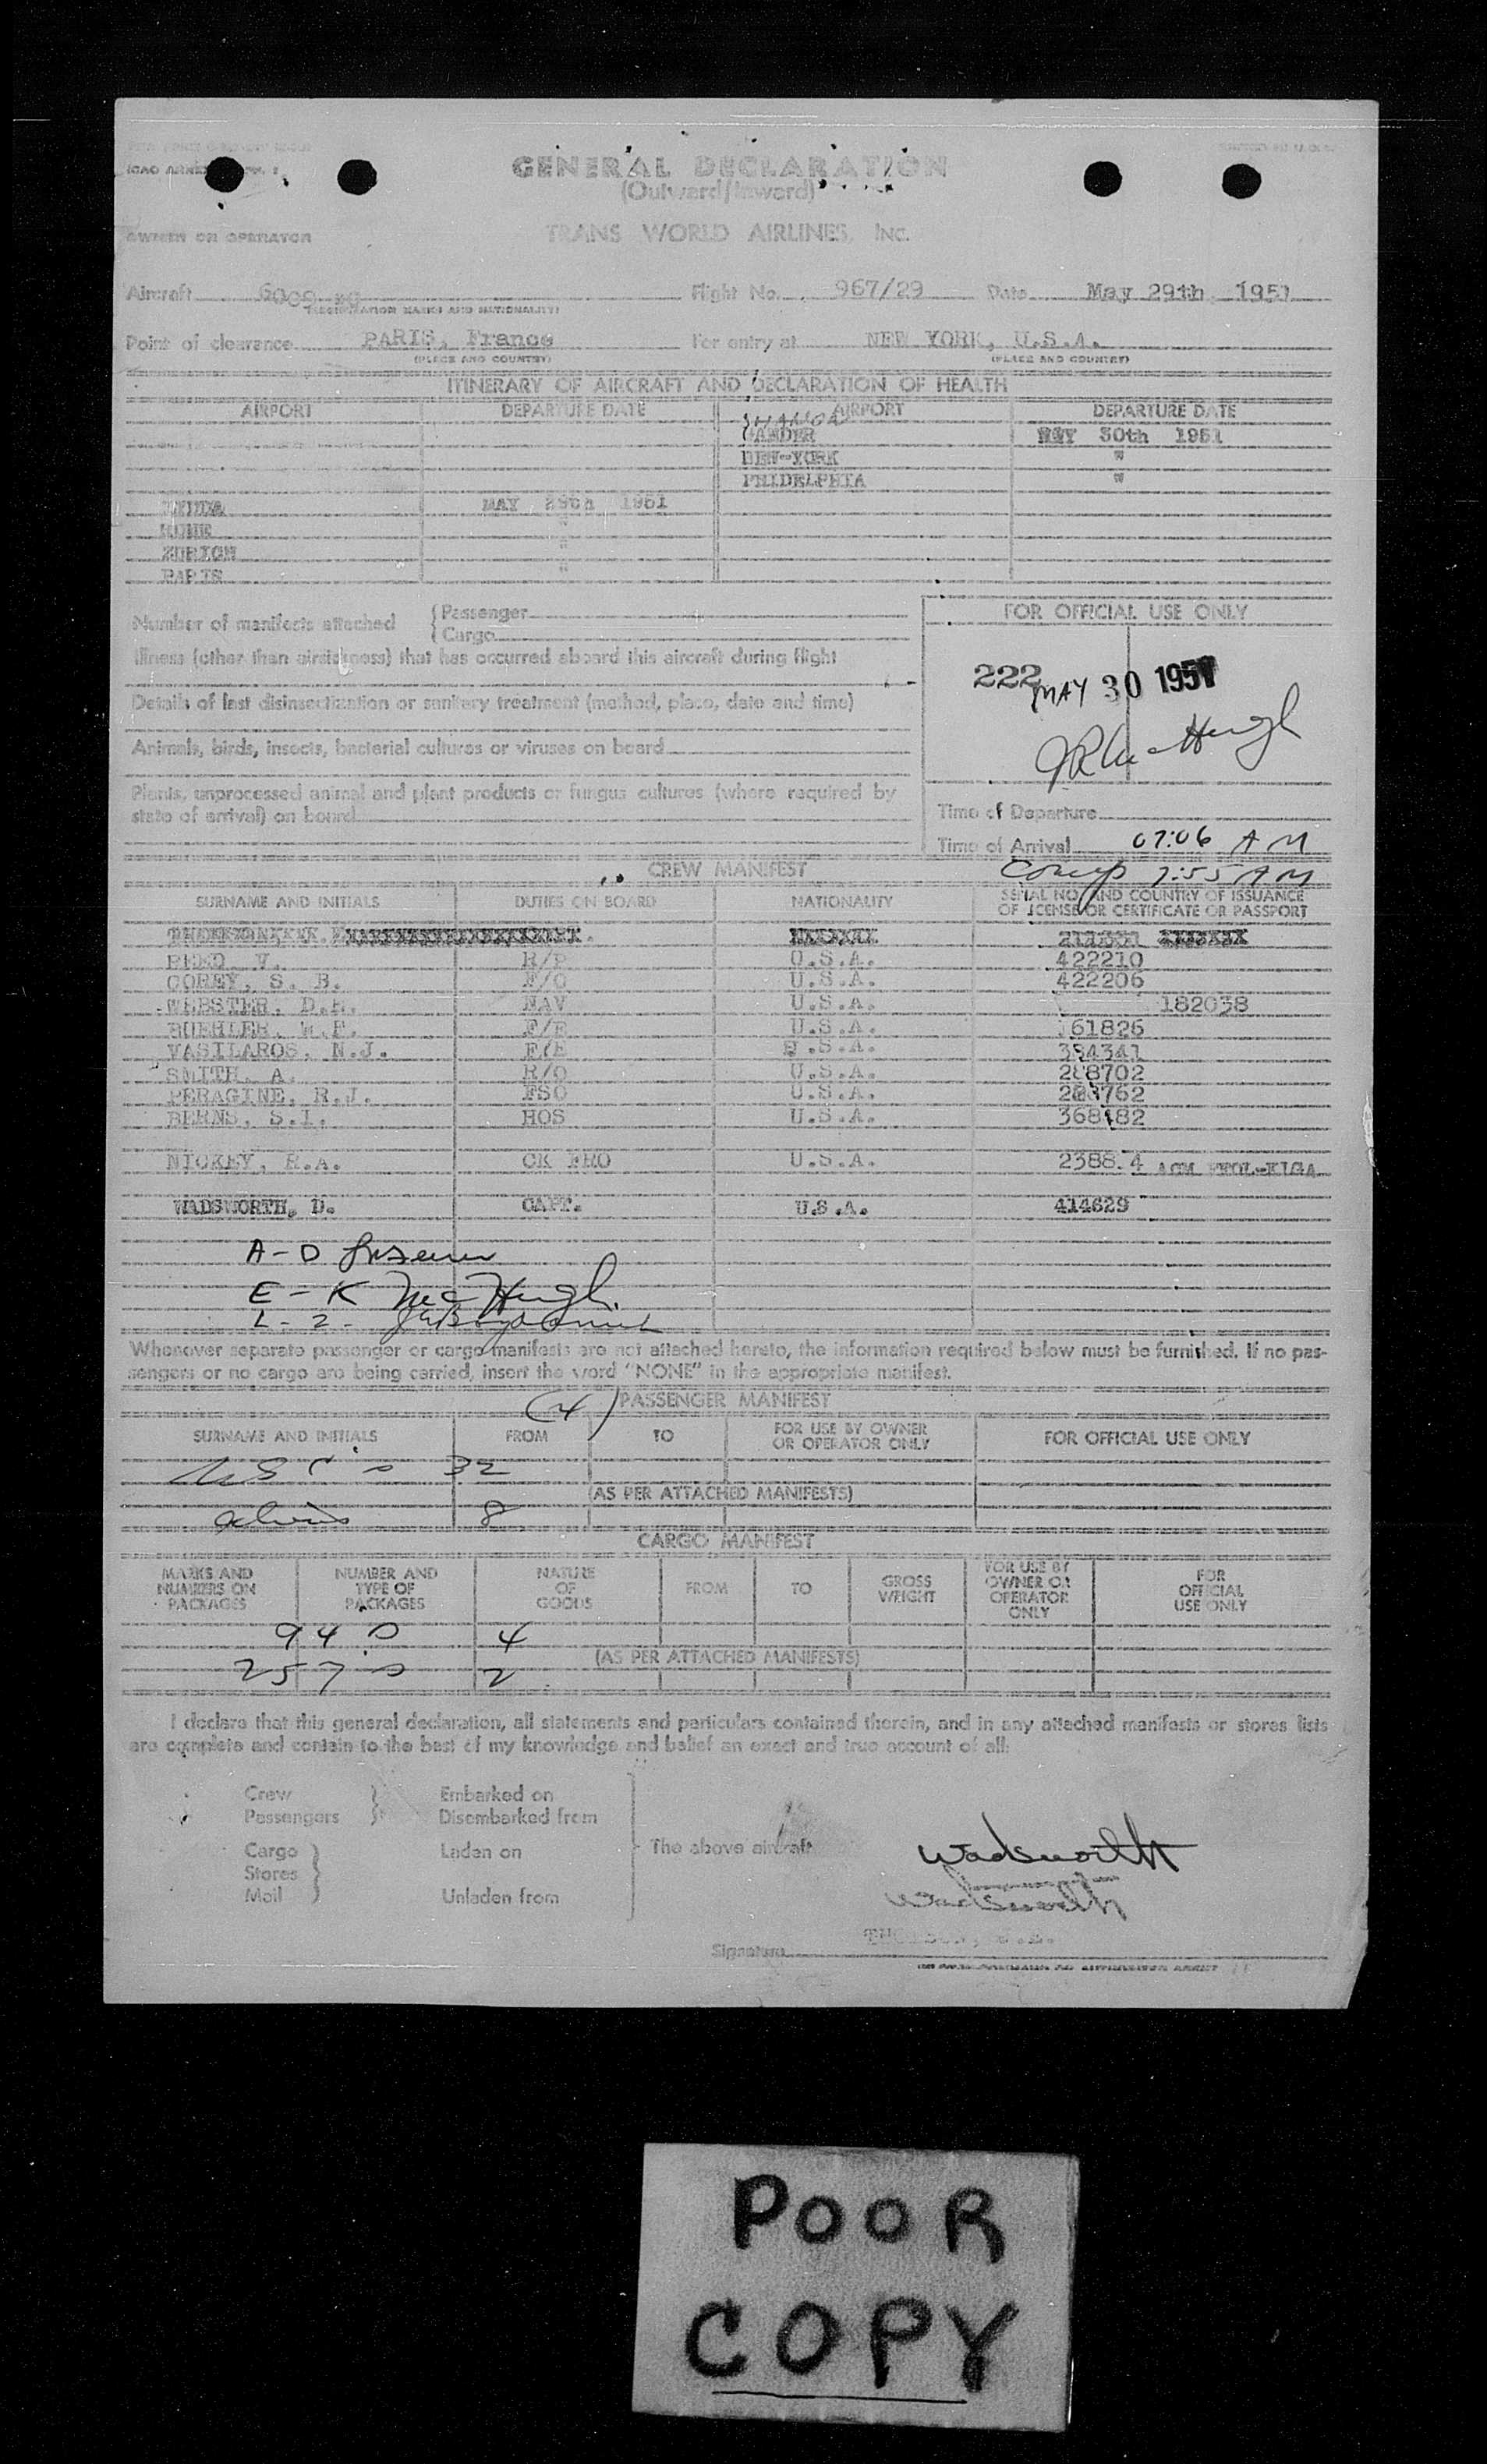 GENERAL DECLARATION
(Outward/Inward)
OWNER OR OPERATOR TRANS WORLD AIRLINES, INC.
Aircraft Flight No. 967/29 Date May 29th 1951
(REGISTRATION MARKS AND NATIONALITY)
Point of clearance PARIS, France For entry at NEW YORK, U.S.A.
(PLACE AND COUNTRY) (PLACE AND COUNTRY)
ITINERARY OF AIRCRAFT AND DECLARATION OF HEALTH
AIRPORT DEPARTURE DATE AIRPORT DEPARTURE DATE
SHANON
GANDER MAY 30th 1951
NEW-YORK "
PHIDELPHIA "
MAY 29th 1951
ROME "
ZURICH "
PARIS "
Number of manifests attached { Passenger
{ Cargo
FOR OFFICIAL USE ONLY
Illness (other than airsickness) that has occurred aboard this aircraft during flight
222 MAY 30 1951
Details of last disinsectization or sanitary treatment (method, place, date and time)
Animals, birds, insects, bacterial cultures or viruses on board
Plants, unprocessed animal and plant products or fungus cultures (where required by
state of arrival) on board
Time of Departure
Time of Arrival 07:06 AM
Comp 7:55 AM
CREW MANIFEST
SURNAME AND INITIALS DUTIES ON BOARD NATIONALITY SERIAL NO. AND COUNTRY OF ISSUANCE
OF LICENSE OR CERTIFICATE OR PASSPORT
REED V. R/P U.S.A. 422210
COREY, S. B. F/O U.S.A. 422206
WEBSTER, D.H. NAV U.S.A. 182038
BUEHLER, W.F. F/E U.S.A. 61826
VASILAROS, N.J. F/E U.S.A. 394341
SMITH, A. R/O U.S.A. 288702
PERAGINE, R.J. FSO U.S.A.
BERNS, S.I. HOS U.S.A. 368182
NICKEY, R.A. CK FRO U.S.A. 2388.4 ACM
WADSWORTH, D. CAPT. U.S.A. 414629
A-D
E-K McHugh
L-Z
Whenever separate passenger or cargo manifests are not attached hereto, the information required below must be furnished. If no pas-
sengers or no cargo are being carried, insert the word "NONE" in the appropriate manifest.
(4) PASSENGER MANIFEST
SURNAME AND INITIALS FROM TO FOR USE BY OWNER
OR OPERATOR ONLY FOR OFFICIAL USE ONLY
32
(AS PER ATTACHED MANIFESTS)
aliens 8
CARGO MANIFEST
MARKS AND
NUMBERS ON
PACKAGES NUMBER AND
TYPE OF
PACKAGES NATURE
OF
GOODS FROM TO GROSS
WEIGHT FOR USE BY
OWNER OR
OPERATOR
ONLY FOR
OFFICIAL
USE ONLY
4
(AS PER ATTACHED MANIFESTS)
2
I declare that this general declaration, all statements and particulars contained therein, and in any attached manifests or stores lists
are complete and contain to the best of my knowledge and belief an exact and true account of all:
Crew Embarked on
Passengers Disembarked from
Cargo Laden on The above aircraft Wadsworth
Stores
Mail Unladen from Wadsworth
Signature
POOR
COPY